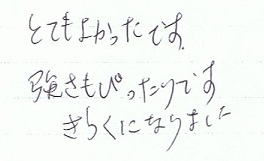 とてもよかったです.
強さもぴったりです
きらくになりました